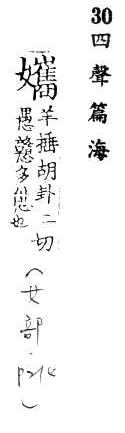 30 四聲篇海
孈 羊捶胡卦二切
愚戇多態也
(女部·P214)